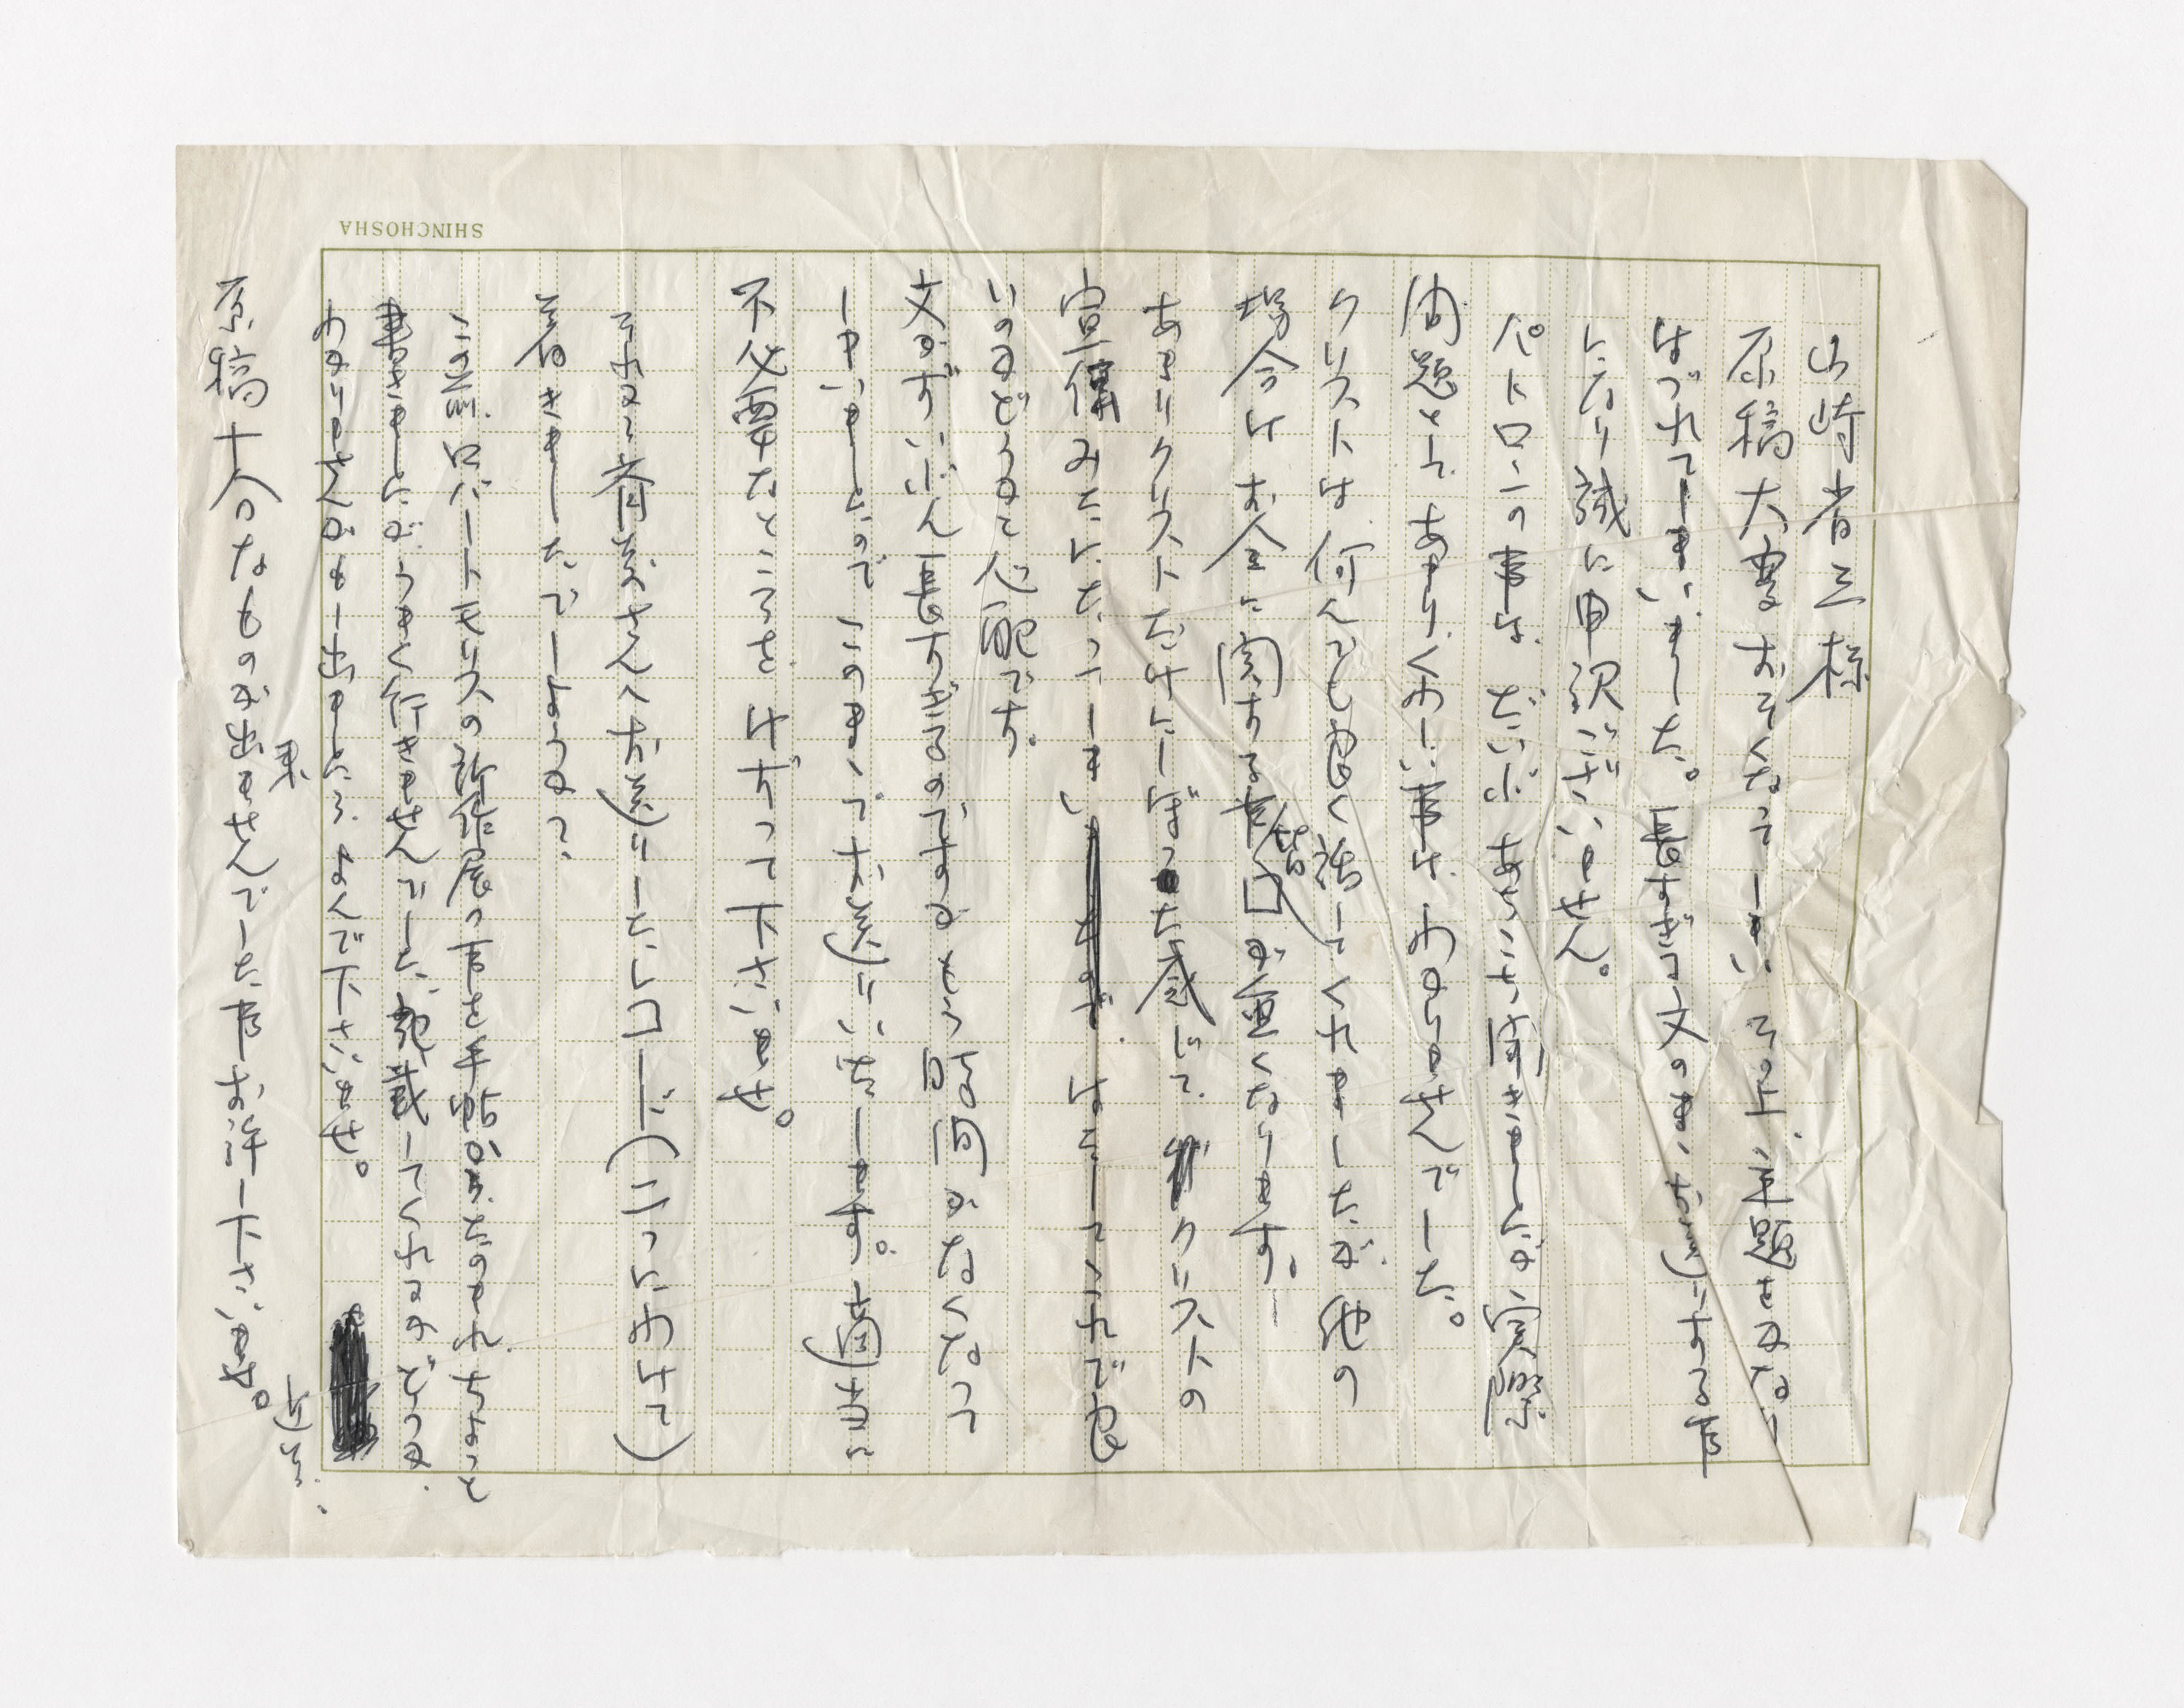 山崎省三様
原稿大変おそくなってしまい、その上、課題よりかなり
はづれてしまいました。長すぎて文のまいなすにする事
になり誠に申訳ございません。
パトロンの事は、だいぶあちこち聞きましたが、実際
問題として、あまりくわしい事は、わかりませんでした。
クリストは何んでも良く話してくれましたが、他の
場合はお金に関すると皆口が重くなります。
あまりクリストだけにしぼった感じで、クリストの
宣伝みたいになってしまい それで良
いのかどうかと心配です。
文がずいぶん長すぎるのですが、もう時間がなくなって
しまいましたので、このまいでお送りいたします。適当に
不必要なところを、けずって下さいませ。
それから斉藤さんへお送りしたレコード(二つにわけて)
着きましたでしょうか?
この前、ロバート・モリスの新作展の事を手帖からたのまれちょっと
書きましたが、うまく行きませんでした、掲載してくれるかどうか、
わかりませんがもし出ましたら、よんで下さいませ。
原稿十分なものが出来ませんでした事お許し下さいませ。
SHINCHOSHA